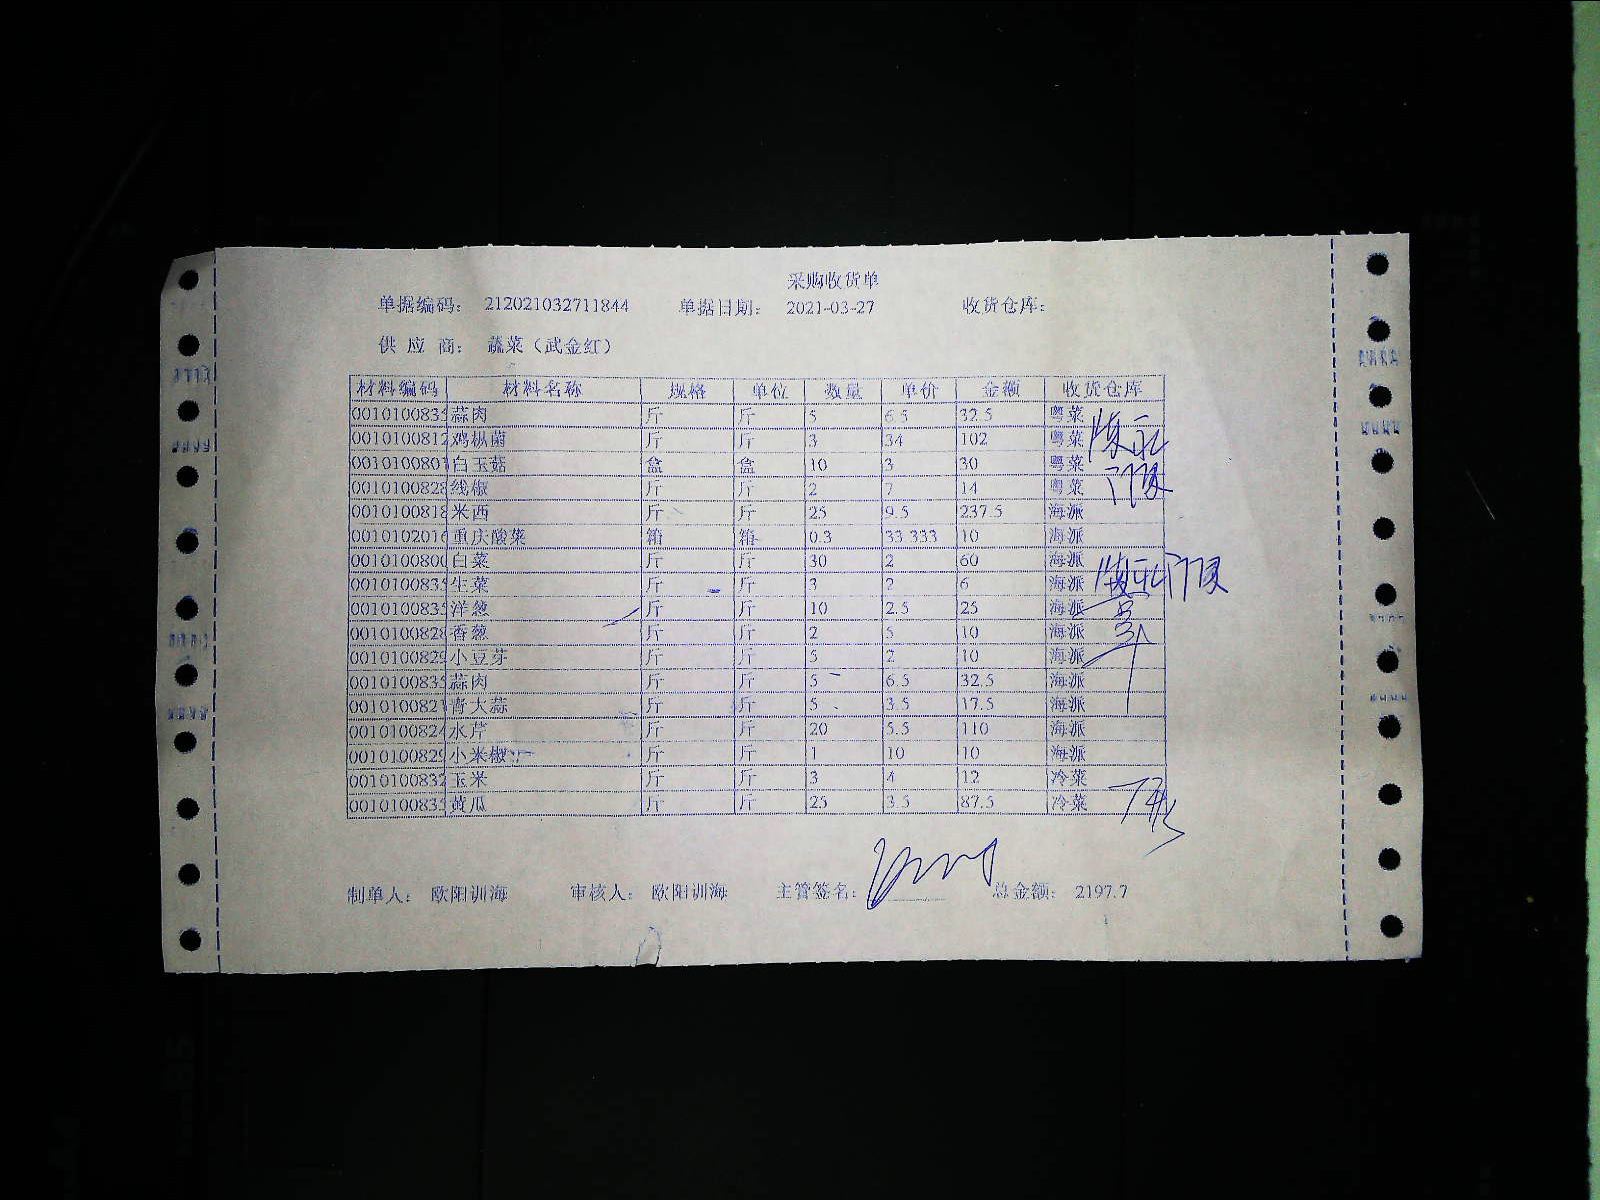 采购收货单
单据编码： 212021032711844 单据日期： 2021-03-27 收货仓库：
供 应 商： 蔬菜（武金红）
材料编码 材料名称 规格 单位 数量 单价 金额 收货仓库
001010083 蒜肉 斤 斤 5 6.5 32.5 粤菜
001010081 鸡枞菌 斤 斤 3 34 102 粤菜
001010080 白玉菇 盒 盒 10 3 30 粤菜
001010082 线椒 斤 斤 2 7 14 粤菜
001010081 米西 斤 斤 25 9.5 237.5 海派
001010201 重庆酸菜 箱 箱 0.3 33.333 10 海派
001010080 白菜 斤 斤 30 2 60 海派
001010083 生菜 斤 斤 3 2 6 海派
001010083 洋葱 斤 斤 10 2.5 25 海派
001010082 香葱 斤 斤 2 5 10 海派
001010082 小豆芽 斤 斤 5 2 10 海派
001010083 蒜肉 斤 斤 5 6.5 32.5 海派
001010082 青大蒜 斤 斤 5 3.5 17.5 海派
001010082 水芹 斤 斤 20 5.5 110 海派
001010082 小米椒 斤 斤 1 10 10 海派
001010083 玉米 斤 斤 3 4 12 冷菜
001010083 黄瓜 斤 斤 25 3.5 87.5 冷菜
制单人： 欧阳训海 审核人： 欧阳训海 主管签名： 总金额： 2197.7